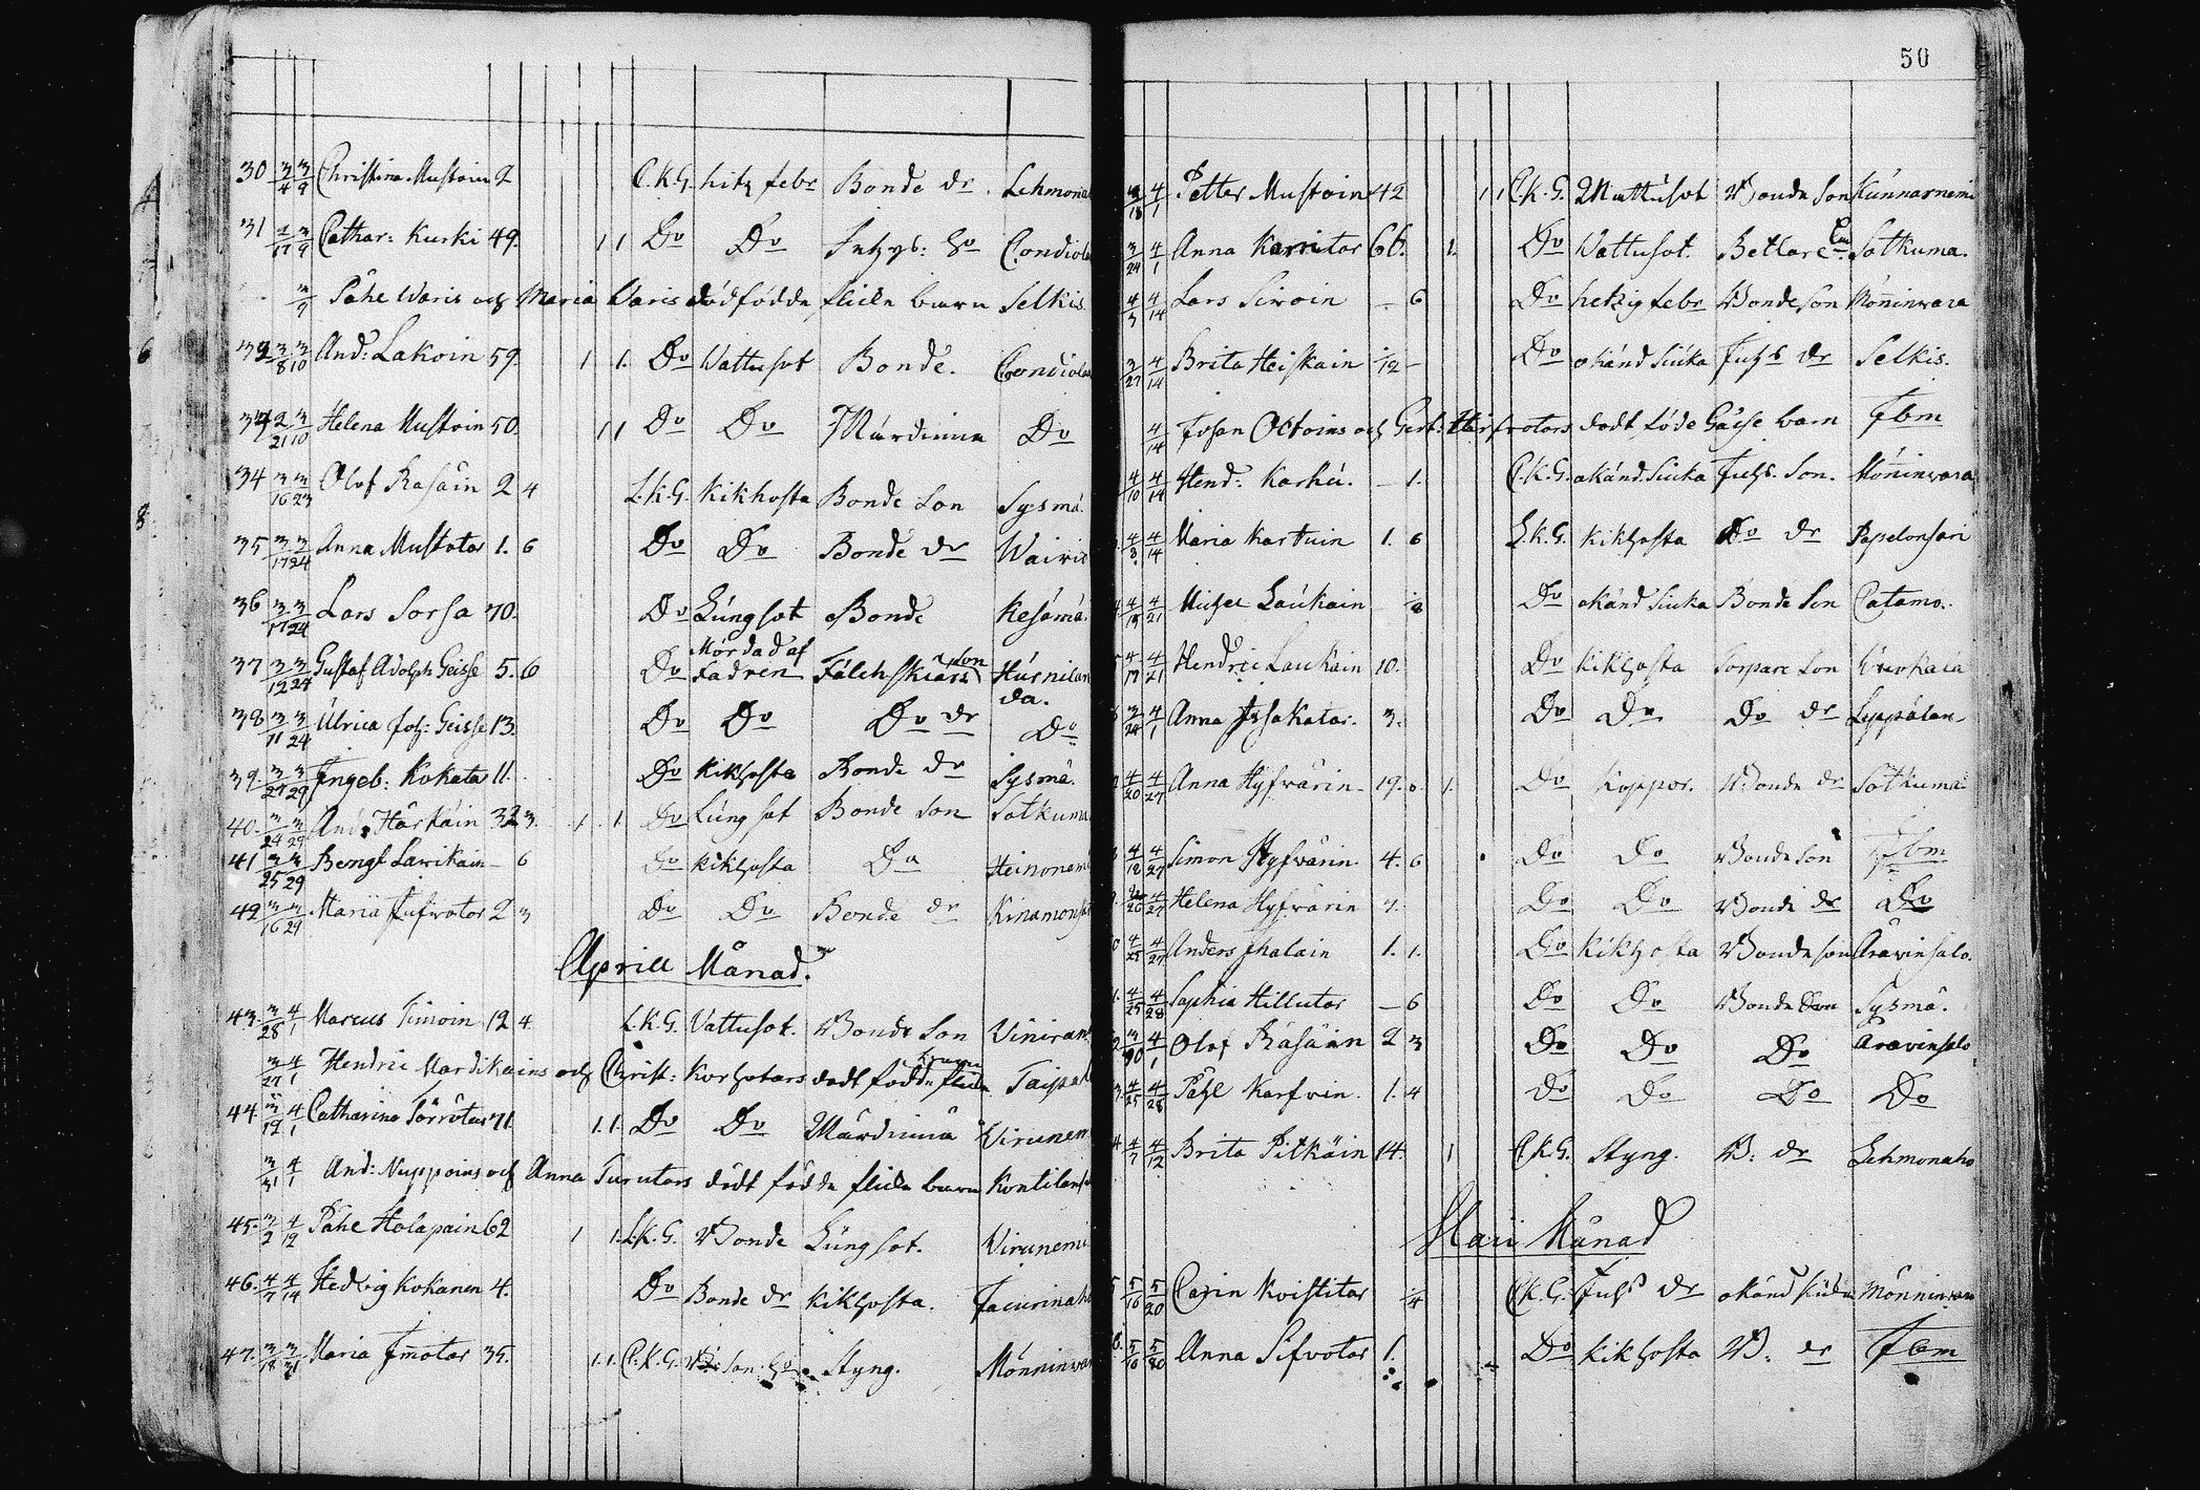 30 3/4 3/9 Christina Mustoin 2 C.K.G. hitz febr Bonde dr Lehmona
31 2/17 3/9 Cathar: Kurki 49. 1 1 Do Do Inhys: Ho Condiola
3/9 Påhe Waris och Maria Waris dödfödda flicke barn Selkis.
3/8 3/10 And: Lakoin 59. 1 1. Do Vattusot Bonde. Condiola
2/21 3/10 Helena Mustoin 50. 1 1 Do Do Do
34 3/16 3/23 Olof Rasäin 2 4 L.K.G. Kikhosta Bonde Son Sysmä.
35 3/17 3/24 Anna Mustotar 1. 6 Do Do Bonde dr Wairi
36 3/17 3/24 Lars Sorsa 70. Do Lúngsot Bonde Kesämä.
Mördad af
37 3/12 3/24 Gustaf Adolph Geisse 5. 6 Do Fadren Fältskiärs Son Hurnilan
da.
38 3/11 3/24 Úlrica Geisse 13. Do Do Do dr Do
39. 3/27 3/29 Ingeb: Kokatar 11. Do Kikhosta Bonde dr Sysmä.
40. 3/24 3/29 And: Härkäin 32 3. 1 1. Do Lúngsot Bonde Son Sotkuma
41 3/25 3/29 Bengt Lawikain — 6 Do Kikhosta Do Heinonem
42 3/16 3/29 Maria 2 3 Do Do Bonde dr Kinamonsa
Aprill Månad.
43. 3/28 4/1 Marcus Timoin 12 4. L.K.G. Vattusot. Bonde Son Viniran
3/27 4/1 Hendric Mardikains och Christ: Korhotars dödt födde flicke Taipal
44. 3/19 4/1 Catharina Törrötar 71 1. 1. Do Do Virunem
3/31 4/1 And: Nuppoins och Anna Turutars dödt födda flicke barn Kontilans
45. 4/12 Påhe Holapain 62 1 1. L.K.G. Bonde Lúngsot. Virunemi
46. 4/7 4/14 Hedvig Kokanen 4. Do Bonde dr Kikhosta.
47. 3/18 3/31 Maria Imotar 35. 1. 1. C.K.G. Styng. Mönninwar
50
3/18 4/1 Petter Mustoin 42 1 1 C.K.G. Wattúsot Bonde Son Kúnnarnemi
3/24 4/1 Anna Karritar 66. 1. Do Wattusot. Sotkuma.
4/3 4/14 Lars Siwoin — 6 Do hetzig febr Bonde Son Mönninwara
3/27 4/14 Brita Heiskain 1/12 — Do okänd Siúka Inhs dr Selkis.
4/14 Johan Octoins och dödt föde Gåsse barn Ibm
4/10 4/14 Hend: Karhú. — 1. C.K.G. okänd. Siúka Inhs. Son. Mönninwara
4/8 4/14 Maria Kartuin 1. 6 L.K.G. Kikhosta Do dr Papelonsari
4/15 4/21 Michel Laúkain Do okänd Siuka Bonde Son Catamo.
4/17 4/21 Hendric Laukain 10. Do Kikhosta Sorpare Son
3/24 4/1 Anna Issakatar. 3. Do Do Do dr Lyppälan
4/20 4/27 Anna Hyfwärin 19. 1. Do Koppor. Bonde dr Sotkuma
4/12 4/27 Simon Hyfwärin. 4. 6 Do Do Bonde Son Ibm
4/27 Helena Hyfwärin 7. Do Do Bonde dr Do
4/25 4/27 Anders Ihalain 1. 1. Do Kikhosta Bonde Son Arawinsalo.
4/25 4/28 Sophia Hillutar — 6 Do Do Bonde Sysmä.
4/1 Olof Räsäin 2 3 Do Do Do Arawinsalo
4/25 4/28 Påhl Karfwin. 1. 4 Do Do Do Do
4/7 4/12 Brita Pitkäin 14. 1 C.K.G. Styng. B: dr Lehmonaho
Maii Månad
5/16 5/20 Carin Koistitar 1/4 C.K.G. Inhs dr okänd Mönninwara
5/16 5/20 Anna Sifvotar 1. Do Kikhosta B: dr Ibm